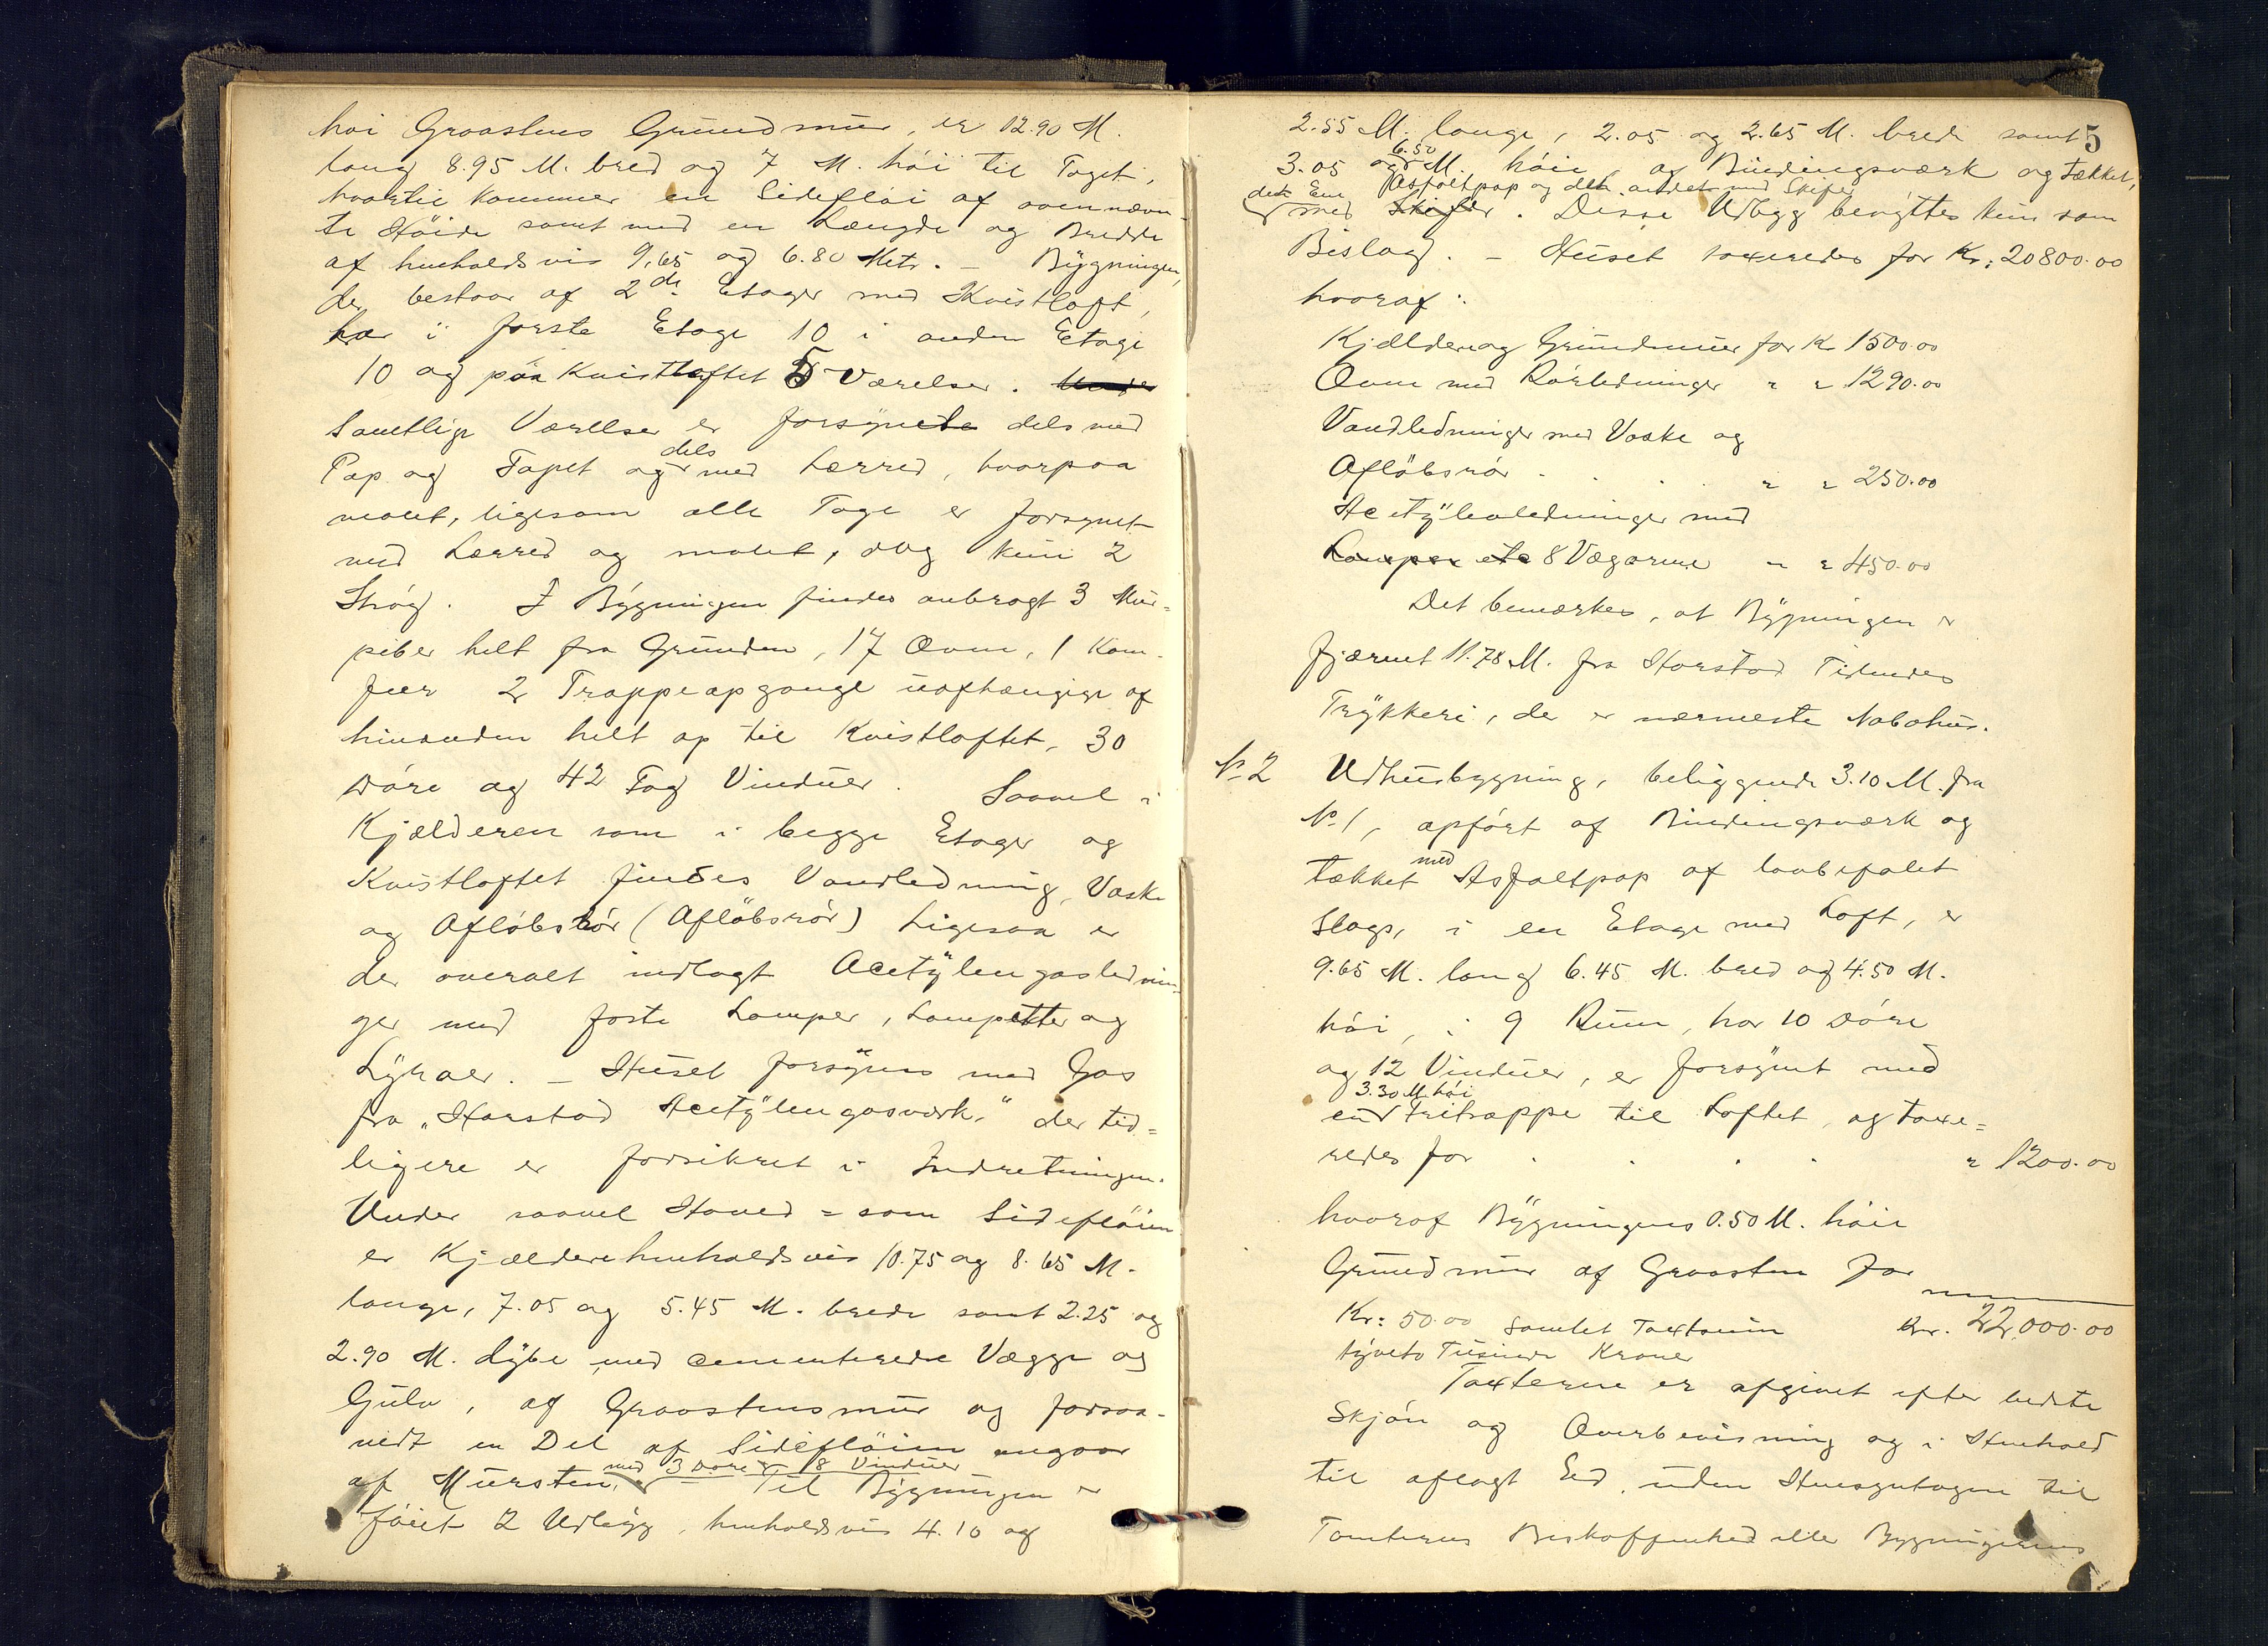 høi Graastens Grundmur, er 12.90 M.
lang 8.95 M. bred og 7 M. høi til Taget,
hvortil kommer en Sidefløi af ovennævn-
te Høide samt med en Længde og Bredde
af henholdsvis 9,65 og 6.80 Metr. – Bygningen,
der bestaar af 2de Etager med Kvistloft,
har i første Etage 10 i anden Etage
10 og paa Kvistloftet 5 Værelser.
Samtlige Værelser er forsynede dels med
Pap og Tapet og dels med Lærred, hvorpaa
malet, ligesom alle Tage er forsynet
med Lærred og malet, dog kun 2
Strøg. I Bygningen findes anbragt 3 Mur=
piber helt fra Grunden, 17 Ovne, 1 Kom-
fur 2 Trappeopgange uafhængige af
hinanden helt op til Kvistloftet, 30
Døre og 42 Fag Vinduer. Saavel i
Kjælderen som i begge Etager og
Kvistloftet findes Vandledning, Vaske
og Afløbsrør (Afløbsrør) Ligesaa er
der overalt indlagt Acetylengaslednin-
ger med faste Lamper, Lampetter og
Lyraer. – Huset forsynes med Gas
fra „Harstad Acetylengasværk," der tid=
ligere er forsikret i Indretningen.
Under saavel Hoved= som Sidefløien
er Kjældere henholdsvis 10.75 og 8.65 M.
lange, 7.05 og 5.45 M. brede samt 2.25 og
2.90 M. dybe med cementerede Vægge og
Gulv, af Graastensmur og forsaa-
vidt en Del af Sidefløien angaar
af Mursten, med 3 Døre 18 Vinduer – Til Bygningen er
føiet 2 Udbygg, henholdsvis 4.10 og
5
2.55 M. lange, 2.05 og 2.65 M. brede samt
3.05 og 6.50 M. høie, af Bindingsværk og tækket,
det Ene med Asfaltpap og det andet med Skifer
Skifer. Disse Udbygg benyttes kun som
Bislag. – Huset taxeredes for Kr: 20800.00
hvoraf:
Kjældere og Grundmur for Kr 1500.00
Ovne med Rørledninger " " 1290.00
Vandledninger med Vaske og
Afløbsrør . . . " " 250.00
Acetylenledninger med
Lamper etc 8 Vægarme " " 450.00
Det bemærkes, at Bygningen er
fjærnet 11.78 M. fra Harstad Tidendes
Trykkeri, der er nærmeste Nabohus.
No 2 Udhusbygning, beliggende 3.10 M. fra
No 1, opført af Bindingsværk og
tækket med Asfaltpap af lovbefalet
Slags, i en Etage med Loft, er
9.65 M. lang 6.45 M. bred og 4.50 M.
høi, i 9 Rum, har 10 Døre
og 12 Vinduer, er forsynt med
en 3.30 M. høi Fritrappe til Loftet, og taxe=
redes for . . . . " 1200.00
hvoraf Bygningens 0.50 M. høie
Grundmur af Graasten for
Kr: 50.00 samlet Taxtsum Kr. 22,000.00
tyveto Tusinde Kroner
Taxterne er afgivet efter bedste
Skjøn og Overbevisning og i Henhold
til aflagt Ed, uden Hensyntagen til
Tomternes Beskaffenhed eller Bygningernes